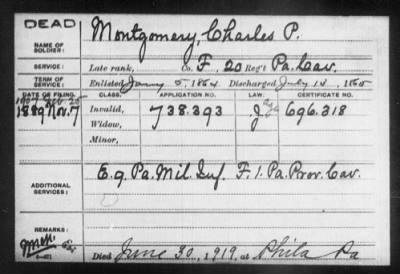 DEAD
NAME OF SOLDIER: Montgomery, Charles P.
SERVICE: Late rank, Co. F, 20 Reg't Pa. Cav.
TERM OF SERVICE: Enlisted Jany 5, 1864 Discharged July 14, 1865
DATE OF FILING. CLASS. APPLICATION NO. LAW. CERTIFICATE NO.
1907 Feb 25
1889 Nov. 7 Invalid, 738.393 696.318
Widow,
Minor,
ADDITIONAL SERVICES: E. 9 Pa. Mil. Inf. F. 1. Pa. Prov. Cav.
REMARKS:
Died June 30, 1919, at Phila Pa